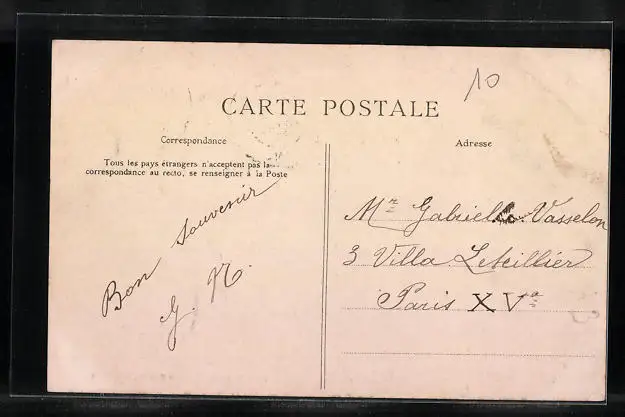 10
CARTE POSTALE
Correspondance
Tous les pays étrangers n'acceptent pas la
correspondance au recto, se renseigner à la Poste
Bon Souvenir
G. N.
Adresse
Mr Gabriel Vasselon
3 Villa Leteillier
Paris XVe